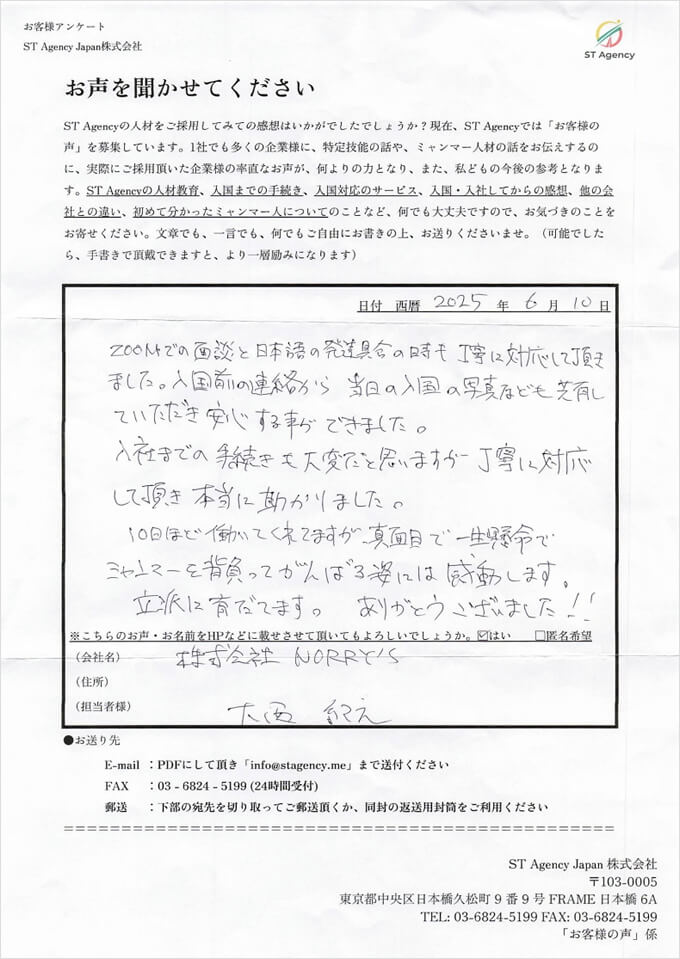 お客様アンケート
ST Agency Japan株式会社
ST Agency
お声を聞かせてください
ST Agencyの人材をご採用してみての感想はいかがでしたでしょうか？現在、ST Agencyでは「お客様の
声」を募集しています。1社でも多くの企業様に、特定技能の話や、ミャンマー人材の話をお伝えするの
に、実際にご採用頂いた企業様の率直なお声が、何よりの力となり、また、私どもの今後の参考となりま
す。ST Agencyの人材教育、入国までの手続き、入国対応のサービス、入国・入社してからの感想、他の会
社との違い、初めて分かったミャンマー人についてのことなど、何でも大丈夫ですので、お気づきのことを
お寄せください。文章でも、一言でも、何でもご自由にお書きの上、お送りくださいませ。（可能でした
ら、手書きで頂戴できますと、より一層励みになります）
日付 西暦 2025 年 6 月 10 日
ZOOMでの面談と日本語の発達具合の時も丁寧に対応して頂き
ました。入国前の連絡から 当日の入国の写真なども共有し
ていただき安心する事ができました。
入社までの手続きも大変だと思いますが丁寧に対応
して頂き本当に助かりました。
10日ほど働いてくれてますが、真面目で一生懸命で
ミャンマーを背負ってがんばる姿には感動します。
立派に育だてます。 ありがとうございました!!
※こちらのお声・お名前をHPなどに載せさせて頂いてもよろしいでしょうか。☑はい □匿名希望
（会社名） 株式会社 NORRY'S
（住所）
（担当者様） 大西 紀え
●お送り先
E-mail ：PDFにして頂き「info@stagency.me」まで送付ください
FAX ：03 - 6824 - 5199 (24時間受付)
郵送 ：下部の宛先を切り取ってご郵送頂くか、同封の返送用封筒をご利用ください
ST Agency Japan 株式会社
〒103-0005
東京都中央区日本橋久松町 9 番 9 号 FRAME 日本橋 6A
TEL: 03-6824-5199 FAX: 03-6824-5199
「お客様の声」係